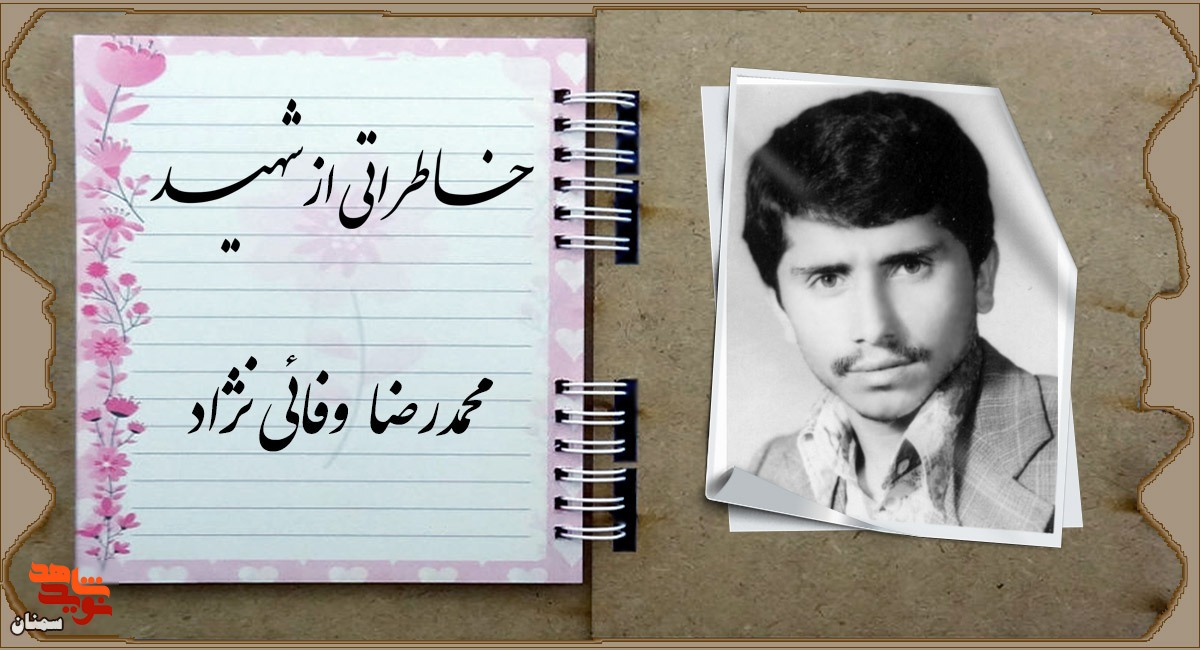 خاطراتی از شهید
محمدرضا وفائی نژاد
نوید شاهد
سمنان